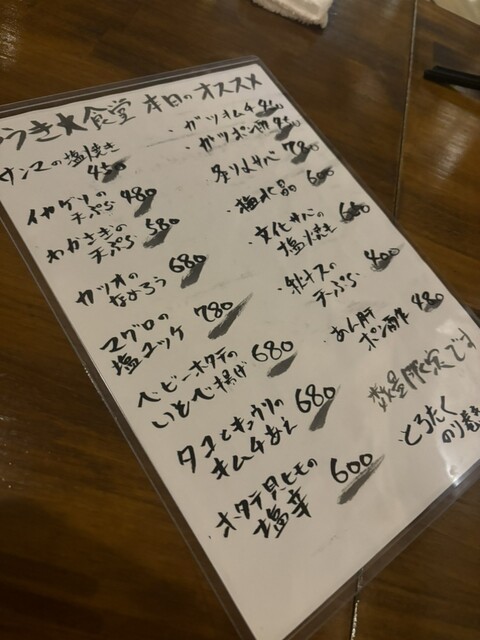 うき大食堂 本日のオススメ
サンマの塩焼き
480
イカゲソの
天ぷら 480
わかさぎの
天ぷら 580
カツオの
なめろう 680
マグロの
塩ユッケ 780
ベビーホタテの
いそべ揚げ 680
タコとキュウリの
キムチあえ 680
ホタテ貝ヒモの
塩辛 600
・ガツキムチ
・ガツポン酢
・炙りしめサバ 780
・塩水晶 600
・文化サバの
塩焼き 600
・秋ナスの
天ぷら 400
・あん肝
ポン酢 980
数量限定です
とろたく
のり巻